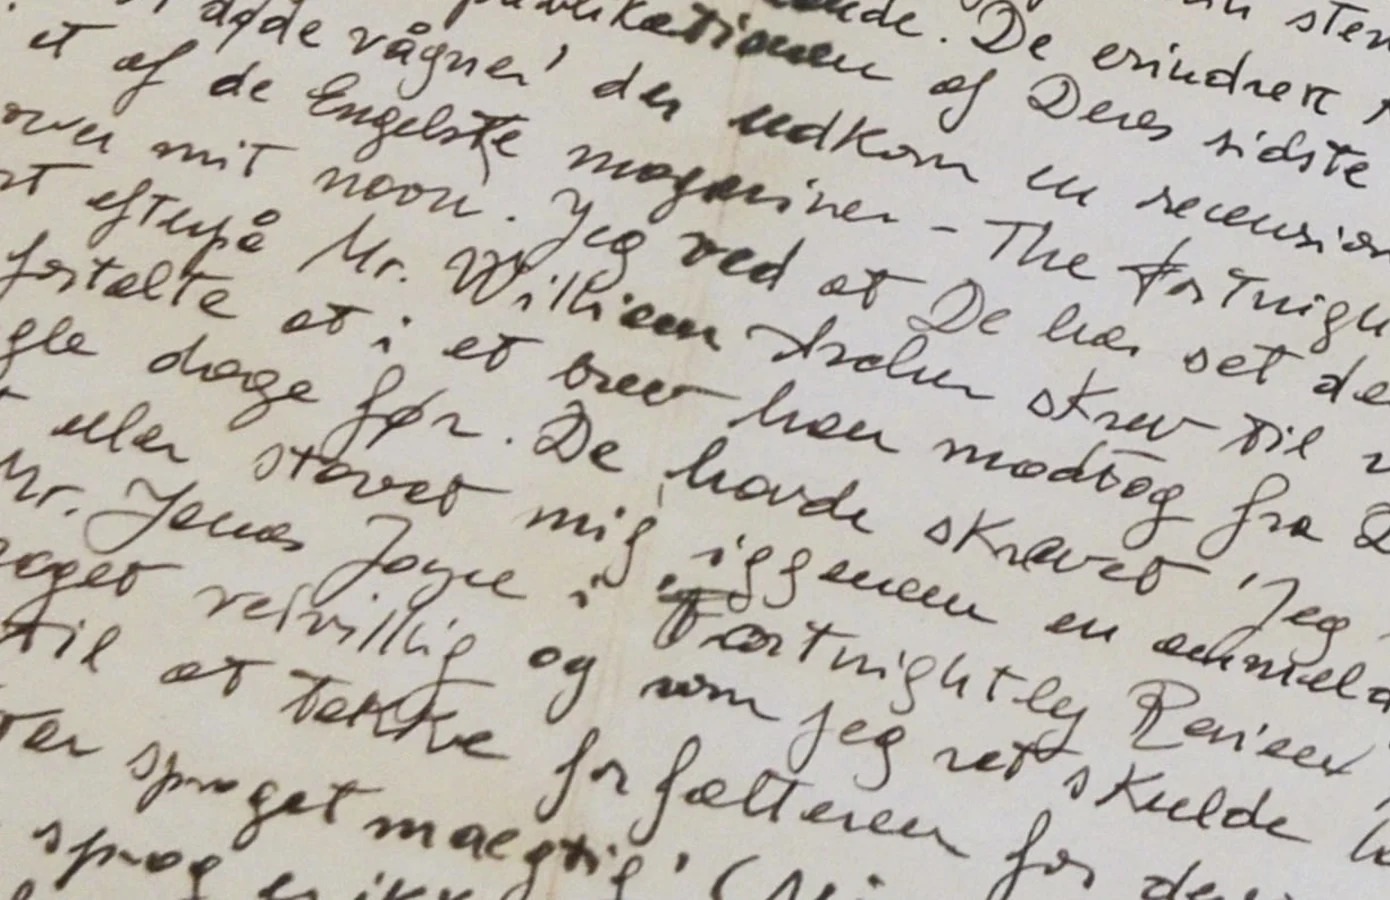 sten
De erindrer
publikationen af Deres sidste
døde vågner' der udkom en recension
et af de Engelske magaziner - The Fortnigh
over mit navn. Jeg ved at De har set de
efterpå Mr. William Archer skrev til
fortalte at i et brev han modtog fra D
gle dage før. De havde skrevet 'Jeg
eller stavet mig iggenem en anmeld
Mr. James Joyce i Fortnightly Review
meget velvillig og som jeg ret skulde
til at takke forfatteren for
sproget maegtig' (
sprog er ikk